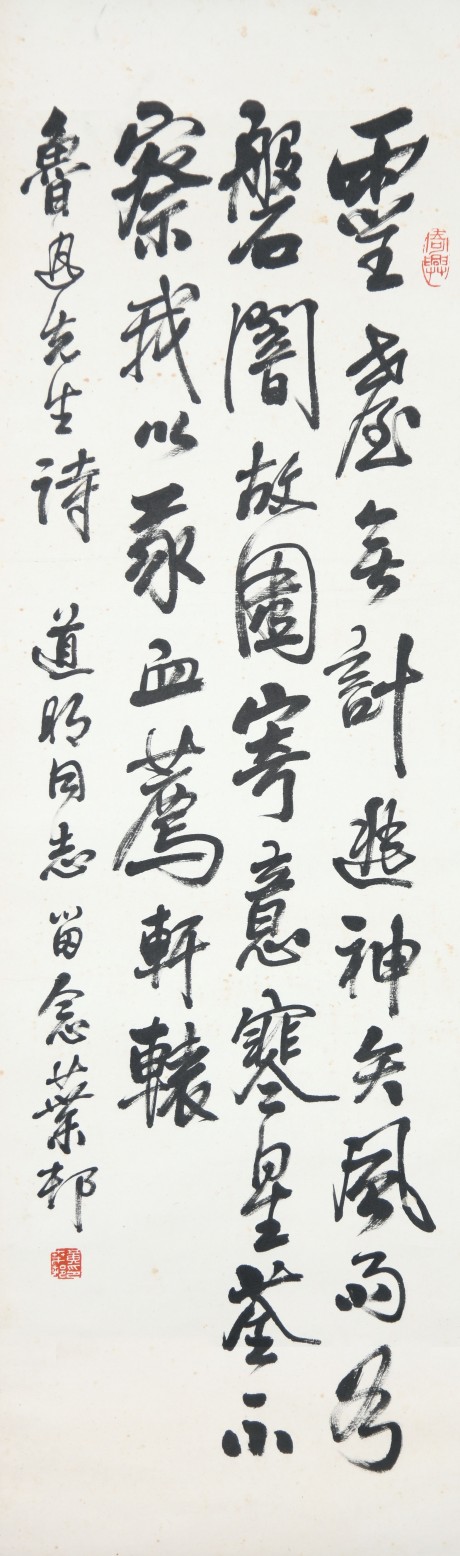 靈臺無計逃神矢風雨若
磐闇故園寄意寒星荃不
察我以我血薦軒轅
魯迅先生詩 道明同志留念 葉邨